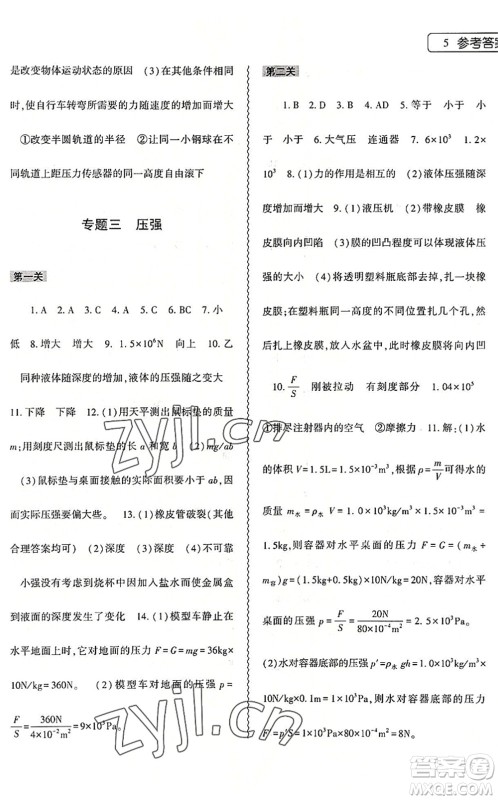 5 参考答案
是改变物体运动状态的原因 (3)在其他条件相同
时,自行车转弯所需要的力随速度的增大而增大
①改变半圆轨道的半径 ②让同一小钢球在不
同轨道上距压力传感器的同一高度自由滚下
专题三 压强
第一关
1. A 2. A 3. A 4. C 5. C 6. BC 7. 小
低 8. 增大 增大 9. 1.5×10⁶N 向上 10. 乙
同种液体随深度的增加,液体的压强随之变大
11. 下降 下降 12. (1)用天平测出鼠标垫的质量
m;用刻度尺测出鼠标垫的长 a 和宽 b (2)mg/ab
(3)鼠标垫与桌面接触的实际面积要小于 ab,因此
实际压强要偏大些。 13. (1)橡皮管破裂(其他
合理答案均可) (2)深度 (3)深度 (4)不可靠
小强没有考虑到烧杯中加入盐水而使金属盒
到液面的深度发生了变化 14. (1)模型车静止在
水平地面上,它对地面的压力 F=G=mg=36kg×
10N/kg=360N。 (2)模型车对地面的压强 p=
F/S=360N/4×10⁻²m²=9×10³Pa。
第二关
1. B 2. D 3. A 4. D 5. 等于 小于 小
于 小于 6. 大气压 连通器 7. 6×10³ 1.2×
10³ 8. (1)力的作用是相互的 (2)液体压强随
深度增加而增大 9. (1)液压机 (2)带橡皮膜 橡
皮膜向内凹陷 (3)橡皮膜的凹凸程度可以体现液体
压强的大小 (4)将透明塑料瓶底部去掉,扎紧橡
皮膜;在塑料瓶同一高度的左右处扎几个孔,然后
扎上橡皮膜,放入水盆中,此时橡皮膜都向内凹陷
10. F/S 刚被拉动 有刻度部分 1.04×10⁵
①排尽注射器内的空气 ②摩擦力 11. 解:(1)水
的体积 V=1.5L=1.5×10⁻³m³,根据 ρ=m/V可得水的
质量 m水=ρ水V=1.0×10³kg/m³×1.5×10⁻³m³=
1.5kg,则容器对水平桌面的压力 F=G=(m水+
m容)g=(1.5kg+0.5kg)×10N/kg=20N 容器对水平
桌面的压强 p=F/S=20N/80×10⁻⁴m²=2.5×10³Pa
(2)水对容器底部的压强 p′=ρ水gh=1.0×10³kg/m³×
10N/kg×0.1m=1×10³Pa,水对容器底部的压力
F′=p′S=1×10³Pa×80×10⁻⁴m²=8N。
zyjl.cn
zyjl.cn
作业精灵